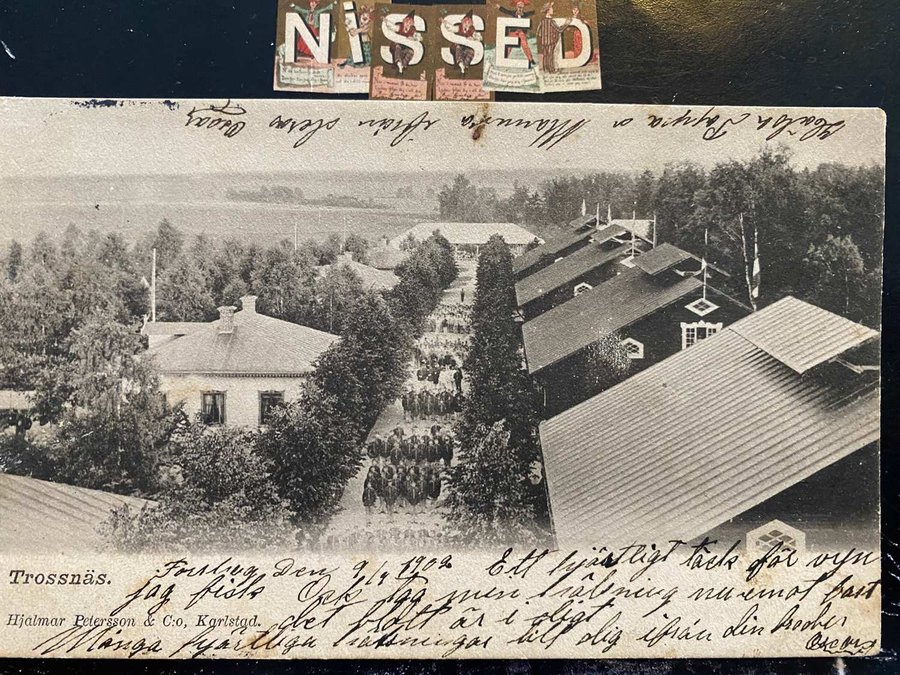 NiSSED
Hälsa Pappa o Mamma ifrån deras Oscar
Trossnäs.
Forshag Den 9/9 1902 Ett hjärtligt tack för vyn
jag fick Och tag min hälsning nu emot fast
Hjalmar Petersson & C:o, Karlstad.
det blott är i
Många hjärtliga hälsningar till dig ifrån din broder
Oscar